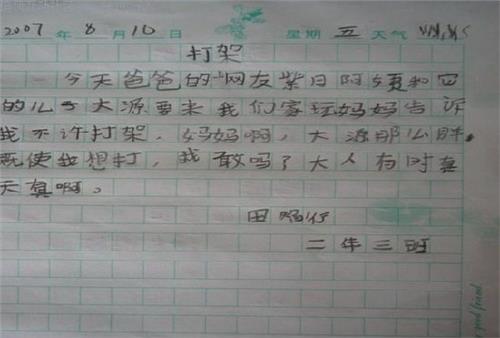 2007 年 8 月 10 日 星期 五 天气
打架
今天爸爸的网友紫日阿姨和它
的儿子大源要来我们家玩妈妈告诉
我不许打架。妈妈啊，大源那么胖，
既使我想打，我敢吗？大人有时真
天真啊。
田
二年三班
good friend